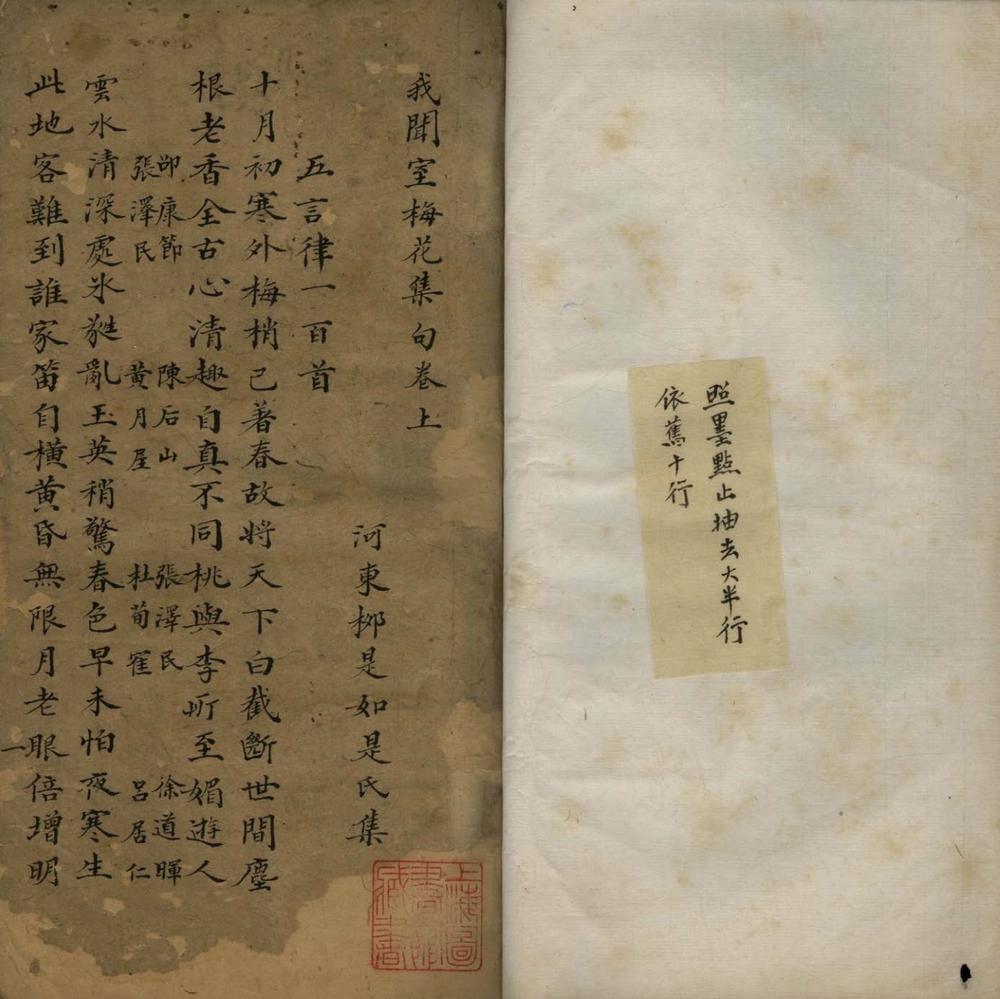 照墨點止抽去大半行
依舊十行
我聞室梅花集句卷上
河東桺是如是氏集
五言律一百首
十月初寒外梅梢已著春故將天下白截斷世間塵
根老香全古心清趣自真不同桃與李所至媚遊人
邵康節 陳后山 張澤民 徐道暉
張澤民 黃月屋 杜荀寉 呂居仁
雲水清深處氷蕤亂玉英稍驚春色早未怕夜寒生
此地客難到誰家笛自橫黃昏無限月老眼倍增明
一
上海圖
書館
藏書